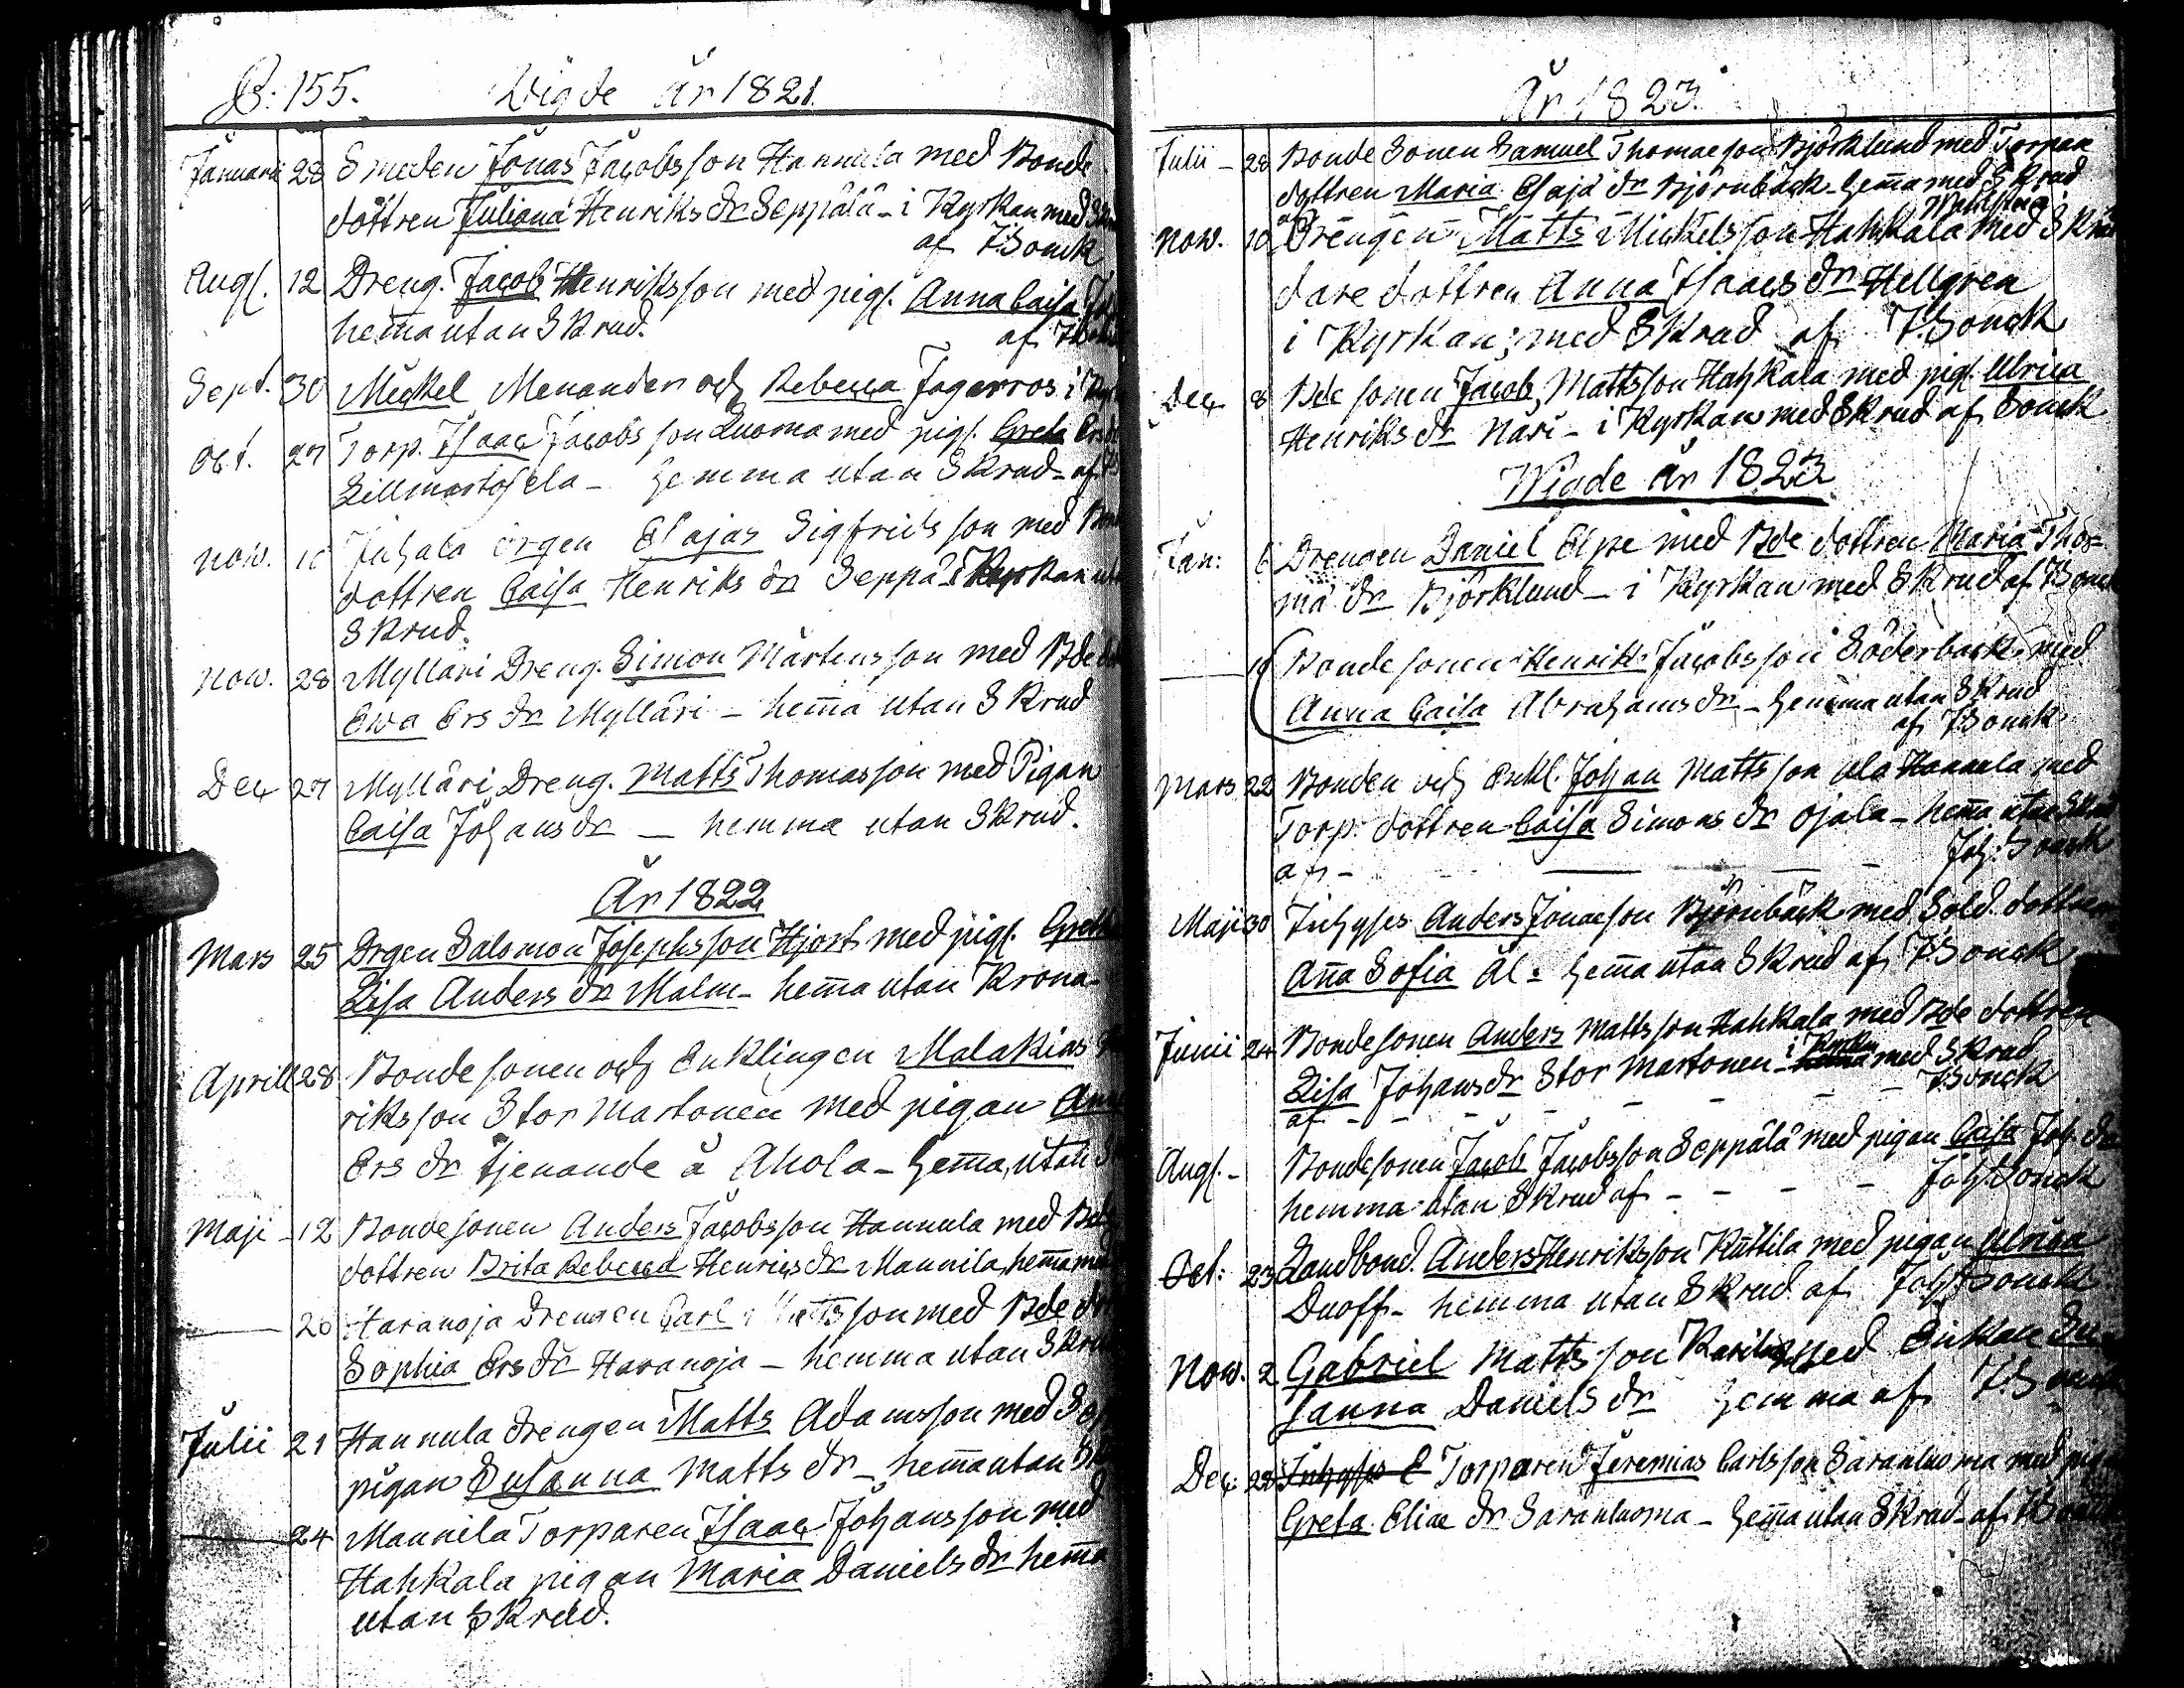 B. 155. Wigde År 1821.
Januarii 28 Smeden Jonas Jacobsson Hannula med Bonde
dottren Juliana Henriks dr Seppälä - i Kyrkan med
af Bonck
Augs. 12 Dreng. Jacob Henriksson med pigs. Anna Caisa
hemma utan Skrud. af
Sept. 30 Mickel Menander och Rebecca Fagerros i
Oct. 27 Torp. Isaac Jacobsson Luoma med pigs. Greta Ers
Lillmartosela - hemma utan Skrud - af
Now. 10 Juhala örgen Esajas Sigfridsson med
dottren Caisa Henriks dr Seppä i Kyrkan
Skrud.
Now. 28 Mylläri Dreng. Simon Mårtensson med Bde
Ewa Ers dr Mylläri - hem̄a utan Skrud
Dec 27 Mylläri Dreng. Matts Thomasson med Pigan
Caisa Johans dr - hemma utan Skrud.
År 1822
Mars 25 Drgen Salomon Josephsson Hjort med pigs.
Lisa Anders dr Malm - hem̄a utan Krona -
Aprill 28 Bondesonen och Enklingen Malakias
riksson Stor Martonen med pigan
Ers dr tjenande å Ahola - hem̄a, utan
Maji - 12 Bondesonen Anders Jacobsson Hannula med
dottren Brita Rebecca Henrics dr Mannila, hem̄a
26 Haranoja Drengen Carl Mattsson med Bde
Sophia Ers dr Haranoja - hemma utan
Julii 21 Hannula drengen Matts Adamsson med
pigan Susanna Matts dr - hem̄a utan
24 Mannila Torparen Isaac Johansson med
Hahkala pigan Maria Daniels dr hem̄a
utan Skrud.
År 1823.
Julii - 28 Bonde Sonen Samuel Thomæson Björklund med Torpare
dottren Maria Esaja dr Björnbäck - hem̄a med Skrud
af
Now. 10 Drengen Matts Mickelsson Hahkala med
dare dottren Anna Isaacs dr Hellgren
i Kyrkan; med Skrud af Bonck
Dec 8 Bde sonen Jacob Mattsson Hahkala med pigs. Ulrica
Henriks dr Näri - i Kyrkan med Skrud af Bonck
Wigde år 1823
Jan: 6 Drengen Daniel Elpe med Bde dottren Maria Tho=
mä dr Björklund - i Kyrkan med Skrud af Bonck
Bonde sonen Henrik Jacobsson Söderback med
Anna Caisa Abrahams dr - hemma utan Skrud
af Bonck
Mars 22 Bonden och Enkl. Johan Mattsson ala Hannula med
Torp. dottren Caisa Simons dr Ojala - hem̄a utan
af - Joh: Bonck
Maji 30 Inhyses Anders Jonæson Björnbäck med Sold. dottren
An̄a Sofia Äl - hem̄a utan Skrud af Bonck
Junii 24 Bondesonen Anders Mattsson Hahkala med Bde dottren
Lisa Johans dr Stor Martonen - i Kyrkan med Skrud
af - Bonck
Augs. - Bondesonen Jacob Jacobsson Seppälä med pigan Caisa Joh. dr
hemma utan Skrud af - Joh Bonck
Oct: 23 Landbond. Anders Henriksson Knttila med pigan Ulrica
Duoff - hemma utan Skrud af Joh Bonck
Now. 2 Gabriel Mattsson med Enkan Su
sanna Daniels dr hemma af
Dec: 28 Inhyses E Torparen Jeremias Carlsson Saranluoma med
Greta Eliæ dr Saranluoma - hem̄a utan Skrud - af